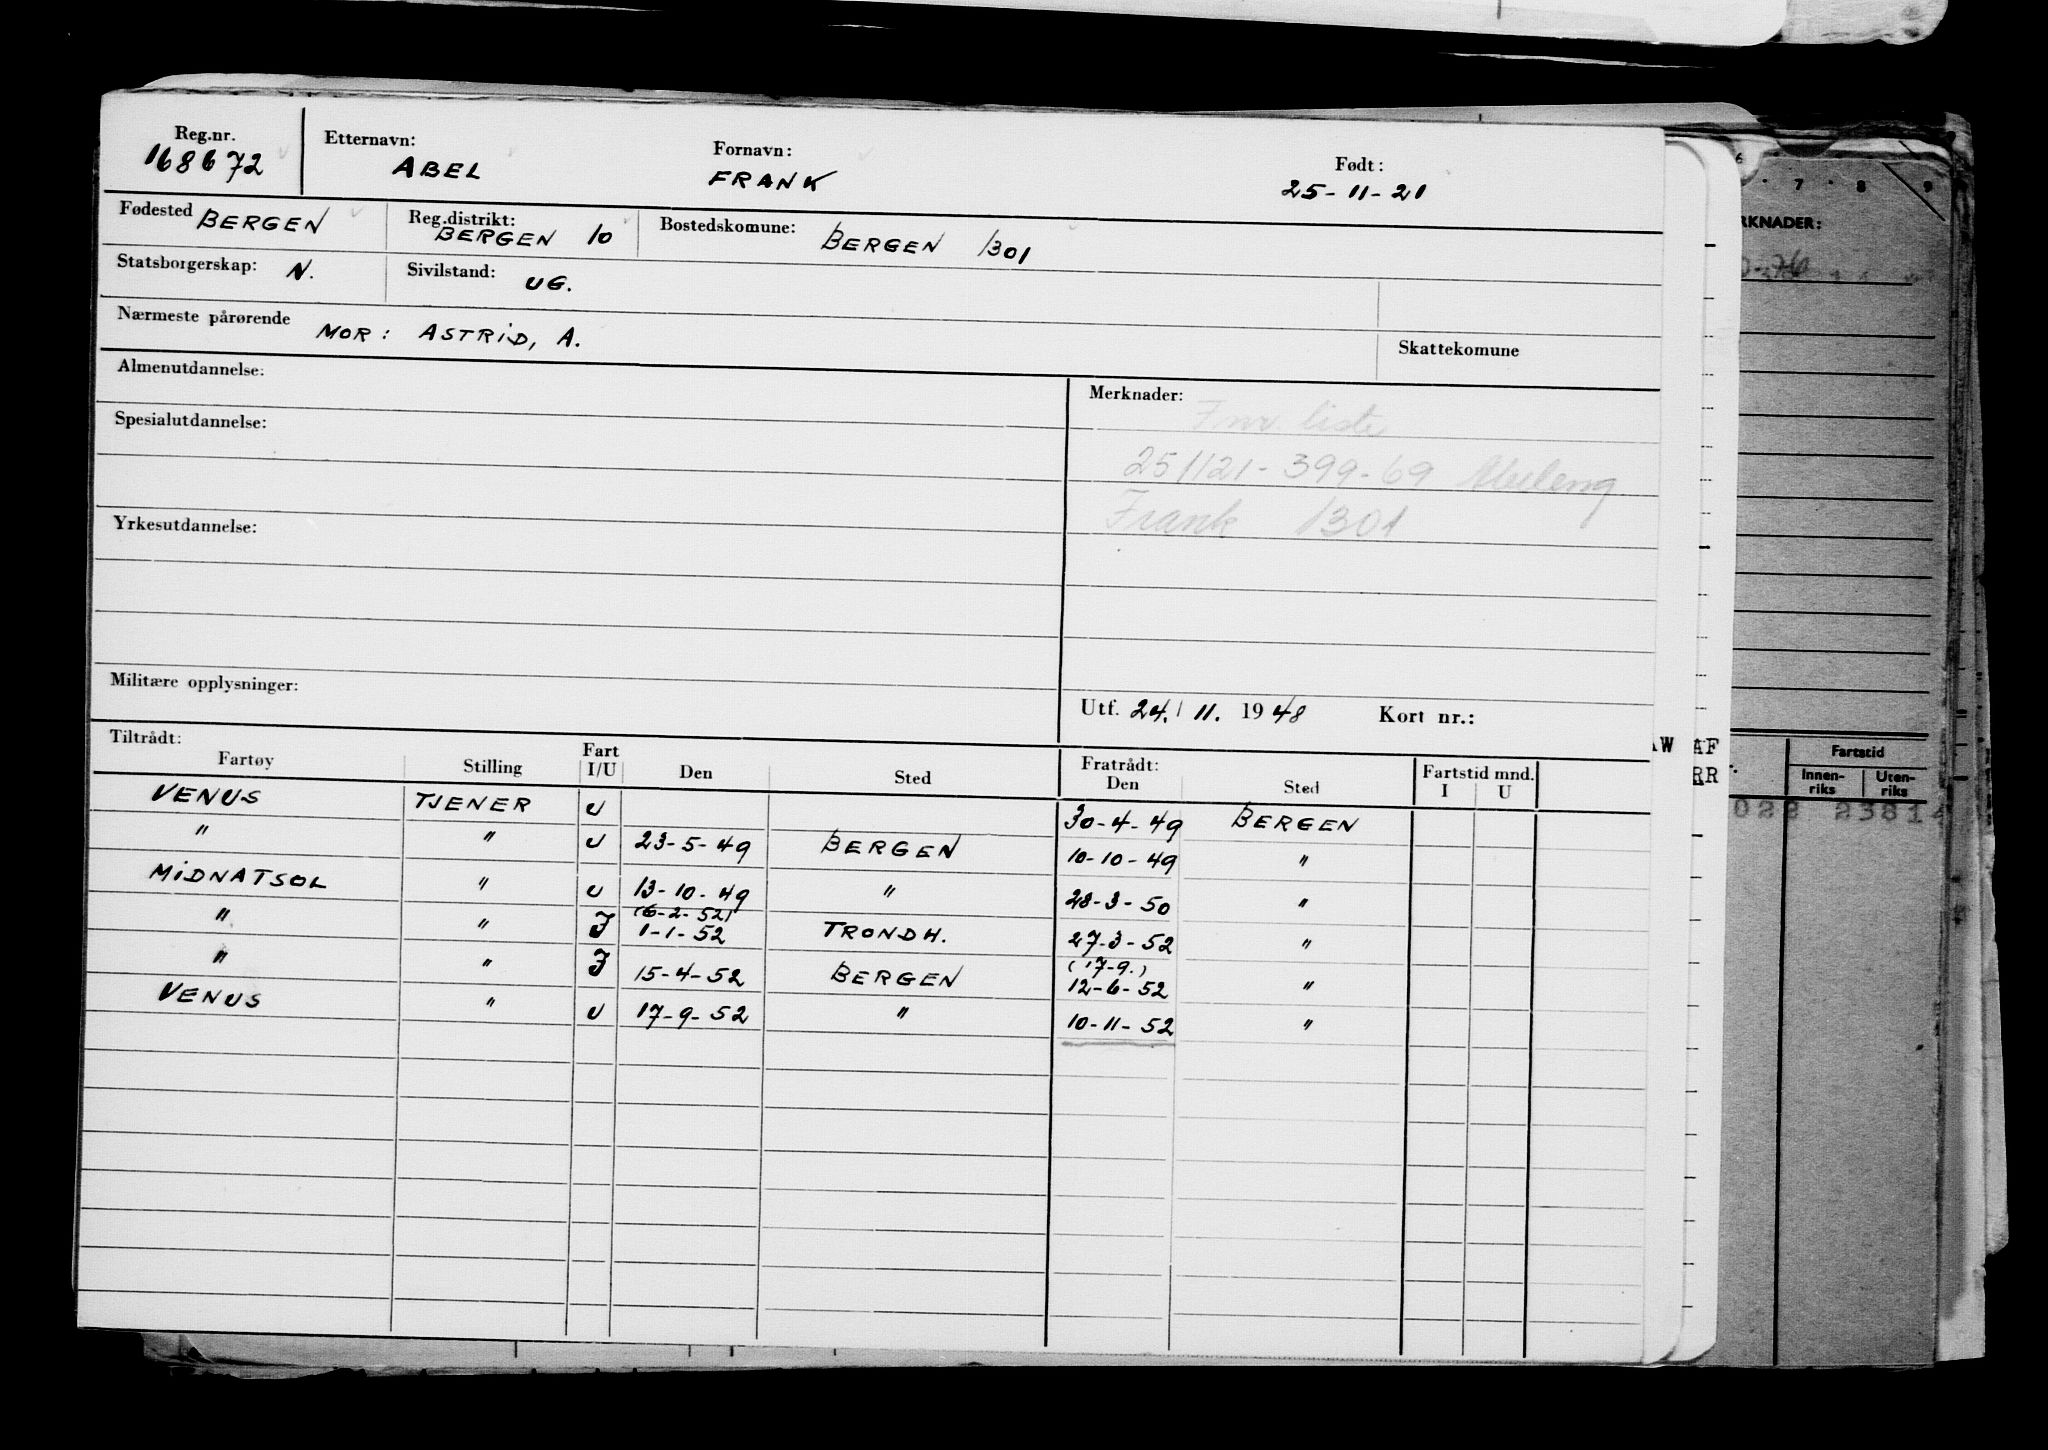 Reg.nr. Etternavn: Fornavn: Født:
168672 ABEL FRANK 25-11-21
Fødested BERGEN Reg.distrikt: BERGEN 10 Bostedskomune: BERGEN 1301
Statsborgerskap: N. Sivilstand: UG.
Nærmeste pårørende MOR: ASTRID, A. Skattekomune
Almenutdannelse: Merknader:
Fnr. liste
Spesialutdannelse:
251121-399-69
Frank 1301
Yrkesutdannelse:
Militære opplysninger:
Utf. 24./ 11. 1948 Kort nr.:
Tiltrådt: Fratrådt:
Fartøy Stilling Fart I/U Den Sted Den Sted Fartstid mnd. I U
VENUS TJENER U 30-4-49 BERGEN
" " U 23-5-49 BERGEN 10-10-49 "
MIDNATSOL " U 13-10-49 " 28-3-50 "
(6-2-52)
" " I 1-1-52 TRONDH. 27-3-52 "
(17-9.)
" " I 15-4-52 BERGEN 12-6-52 "
VENUS " U 17-9-52 " 10-11-52 "
6 7 8 9
RKNADER:
AW AF
RR
Fartstid
Innen-riks Uten-riks
022 23814